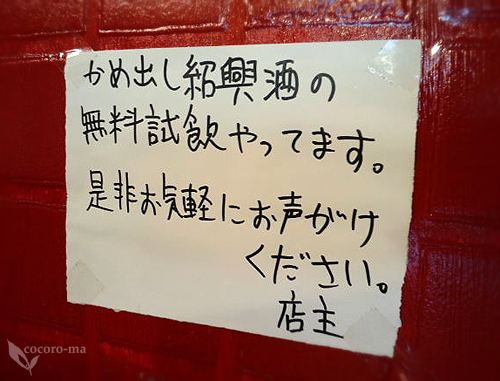 かめ出し紹興酒の
無料試飲やってます。
是非お気軽にお声がけ
ください。
店主
cocoro-ma